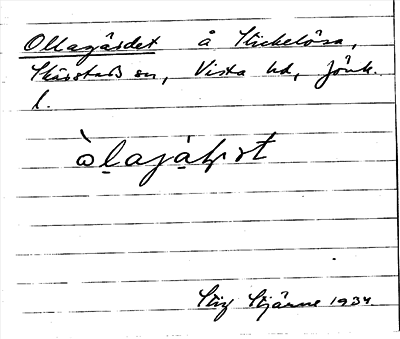 Ollagärdet å Stickelösa,
Skärstads sn, Vista hd, Jönk.
l.
òlajạ̈ḥṣt
Stig Stjärne 1934.